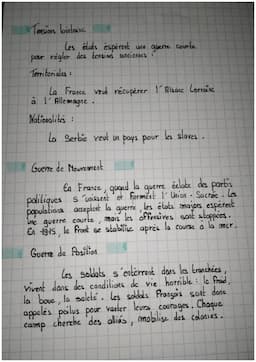 Tensions
Les états espèrent une guerre courte
pour régler des tensions anciennes :
Territoriales :
La France veut récupérer l'Alsace Lorraine
à l'Allemagne.
Nationalités :
La Serbie veut un pays pour les slaves.
Guerre de Mouvement
En France, quand la guerre éclate des partis
politiques s'unissent et forment l'Union-Sacrée. Les
populations acceptent la guerre, les états majors espèrent
une guerre courte, mais les offensives sont stoppées.
En 1915, le front se stabilise après la course à la mer.
Guerre de Position
Les soldats s'entèrrent dans les tranchées,
vivent dans des conditions de vie horrible : le froid,
la boue, la saleté. Les soldats Français sont donc
appelés poilus pour vanter leurs courages. Chaque
camp cherche des alliés, mobilise des colonies.